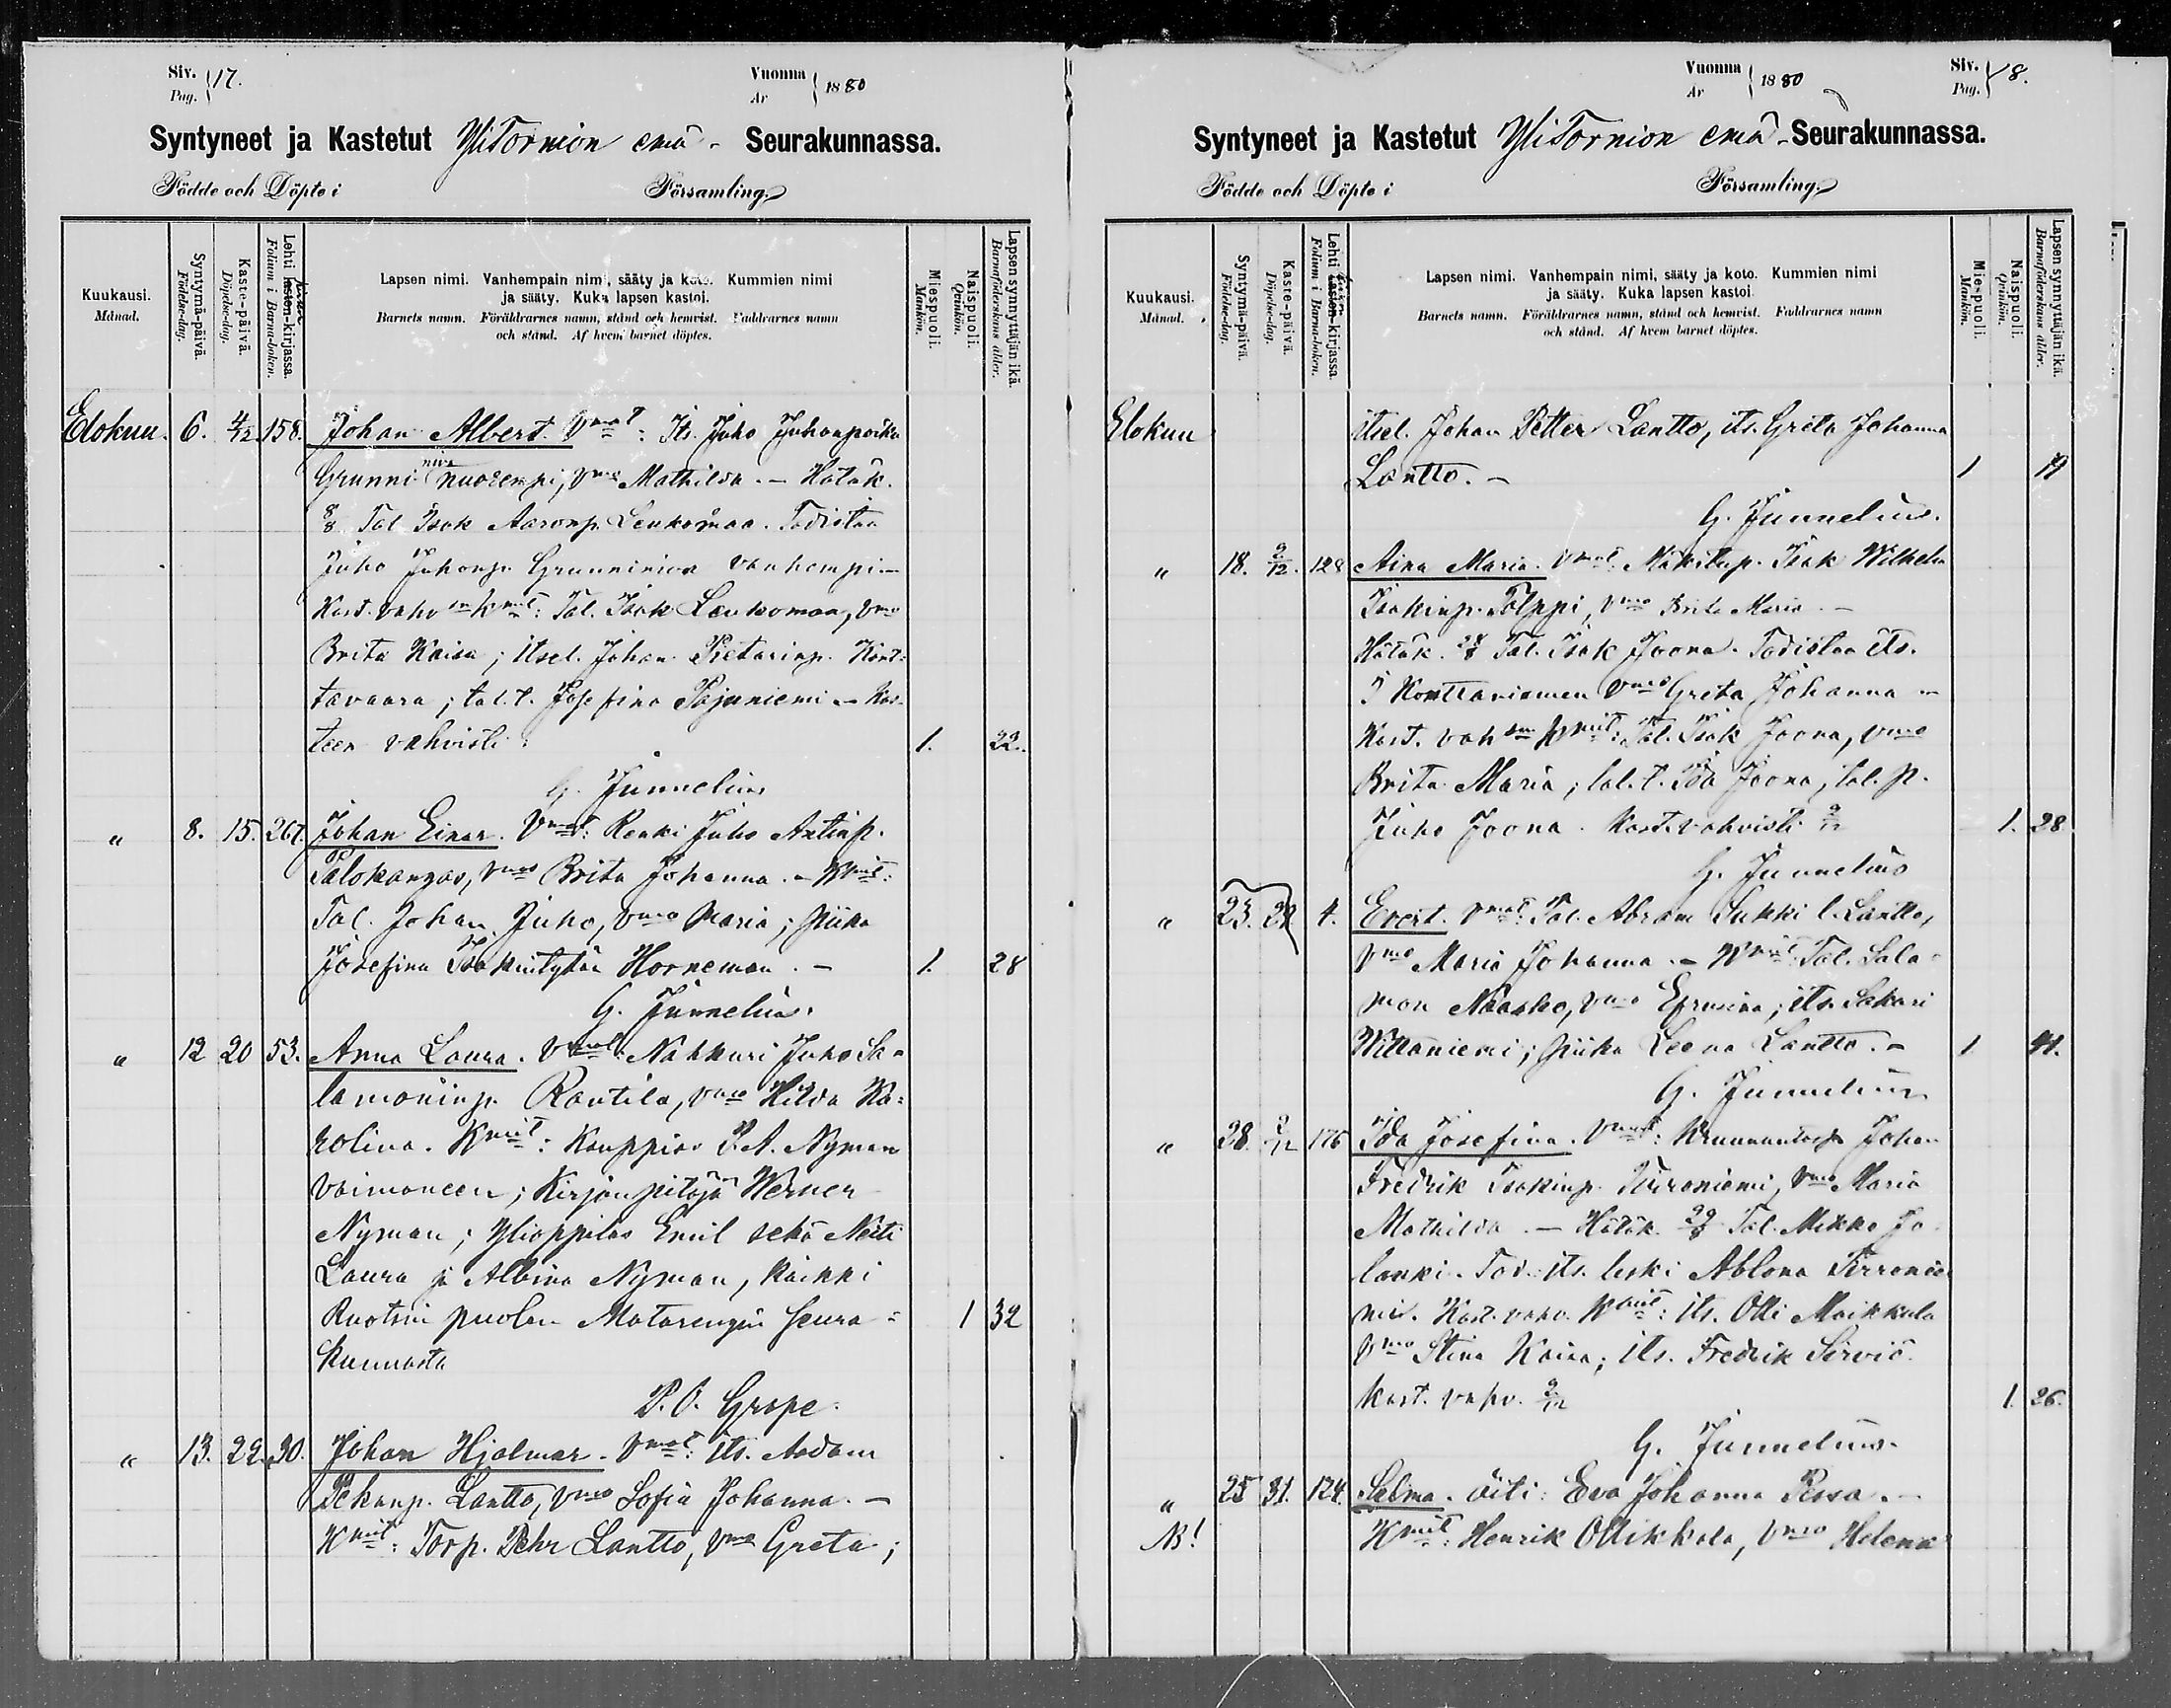 Siv. Pag. 17.
Vuonna År 1880
Syntyneet ja Kastetut YliTornion emä- Seurakunnassa.
Födde och Döpte i Församling.
Kuukausi. Månad.
Syntymä-päivä. Födelse-dag.
Kaste-päivä. Döpelse-dag.
Lehti lasten-kirjassa. Folium i Barna-boken.
Lapsen nimi. Vanhempain nimi, sääty ja koto. Kummien nimi
ja sääty. Kuka lapsen kastoi.
Barnets namn. Föräldrarnes namn, stånd och hemvist. Faddrarnes namn
och stånd. Af hvem barnet döptes.
Miespuoli. Mankön.
Naispuoli. Qvinkön.
Lapsen synnyttäjän ikä. Barnaföderskans ålder.
Elokuu. 6. 4/12 158. Johan Albert. Vmat: Its. Juho Juhonpoika
Grunni niva nuorempi, Vmo Mathilda. - Hätäk.
8/8 Tal. Isak Aaronp. Leukomaa. Todistaa
Juho Juhonp. Grunniniva vanhempi -
Kast. vahv. Kmit: Tal. Isak Leukoman, Vmo
Brita Kaisa; itsel. Johan Pietarinp. Kont-
tavaara; tal. t. Josefina Pajuniemi - Kas-
teen vahvisti: 1. 22.
G. Junnelius
" 8. 15. 267. Johan Einar. Vmat: Renki Juho Antinp.
Palokangas, Vmo Brita Johanna. - Kmit:
Tal. Johan Juho, Vmo Maria; piika
Josefina Isakintytär Horneman. - 1. 28
G. Junnelius.
" 12 20 53. Anna Laura. Vmat: Nahkuri Juho Sa-
lamoninp. Rautila, Vmo Hilda Ka-
rolina. Kmit: Kauppias P. A. Nyman
vaimoneen; Kirjanpitäjä Werner
Nyman; Ylioppilas Emil sekä Neiti
Laura ja Albina Nyman, kaikki
Ruotsin puolen Matarengin seura- 1 32
kunnasta
P. O. Grape.
" 13. 22. 30. Johan Hjalmar. Vmat: Its. Aadam
Pekanp. Lantto, Vmo Sofia Johanna. -
Kmit: Torp. Pehr Lantto, Vmo Greta;
Vuonna År 1880
Siv. Pag. 18.
Syntyneet ja Kastetut YliTornion emä- Seurakunnassa.
Födde och Döpte i Församling.
Kuukausi. Månad.
Syntymä-päivä. Födelse-dag.
Kaste-päivä. Döpelse-dag.
Lehti lasten-kirjassa. Folium i Barna-boken.
Lapsen nimi. Vanhempain nimi, sääty ja koto. Kummien nimi
ja sääty. Kuka lapsen kastoi.
Barnets namn. Föräldrarnes namn, stånd och hemvist. Faddrarnes namn
och stånd. Af hvem barnet döptes.
Miespuoli. Mankön.
Naispuoli. Qvinkön.
Lapsen synnyttäjän ikä. Barnaföderskans ålder.
Elokuu itsel. Johan Petter Lantto, its. Greta Johanna
Lantto. - 1
G. Junnelius.
" 18. 2/12. 128 Aina Maria. Vmat: Mäkitup. Isak Wilhelm
Isakinp. Tolppi, Vmo Brita Maria. -
Hätäk. Tal. Isak Joona. Todistaa its.
Konttaniemen Vmo Greta Johanna -
Kast. vah. Kmit: Tal. Isak Joona, Vmo
Brita Maria; tal. t. Ida Joona, tal. p.
Juho Joona. Kast. vahvisti 2/12 1. 28
G. Junnelius
" 23. 4. Evert. Vmat: Tal. Abram Sukki l. Lantto,
Vmo Maria Johanna. - Kmit: Tal. Sala-
mon Naasko, Vmo Efrusina; its. Sakari
Wittaniemi; piika Leena Lantto. - 1 41.
G. Junnelius
" 28. 2/12 176 Ida Josefina. Vmat: Johan
Fredrik Isakinp. Tirroniemi, Vmo Maria
Mathilda. - Hätäk. 29/8 Tal. Mikko Jo-
lanki. Tod. its. leski Ablona Tirronie-
mi. Kast. vahv. Kmit: its. Olli Maikkula
Vmo Stina Kaisa; its. Fredrik Serviö.
Kast. vahv. 2/12 1. 26.
G. Junnelius.
" 25 31. 124. Selma. äiti: Eva Johanna Pessa. -
NB! Kmit: Henrik Ollikkala, Vmo Helena